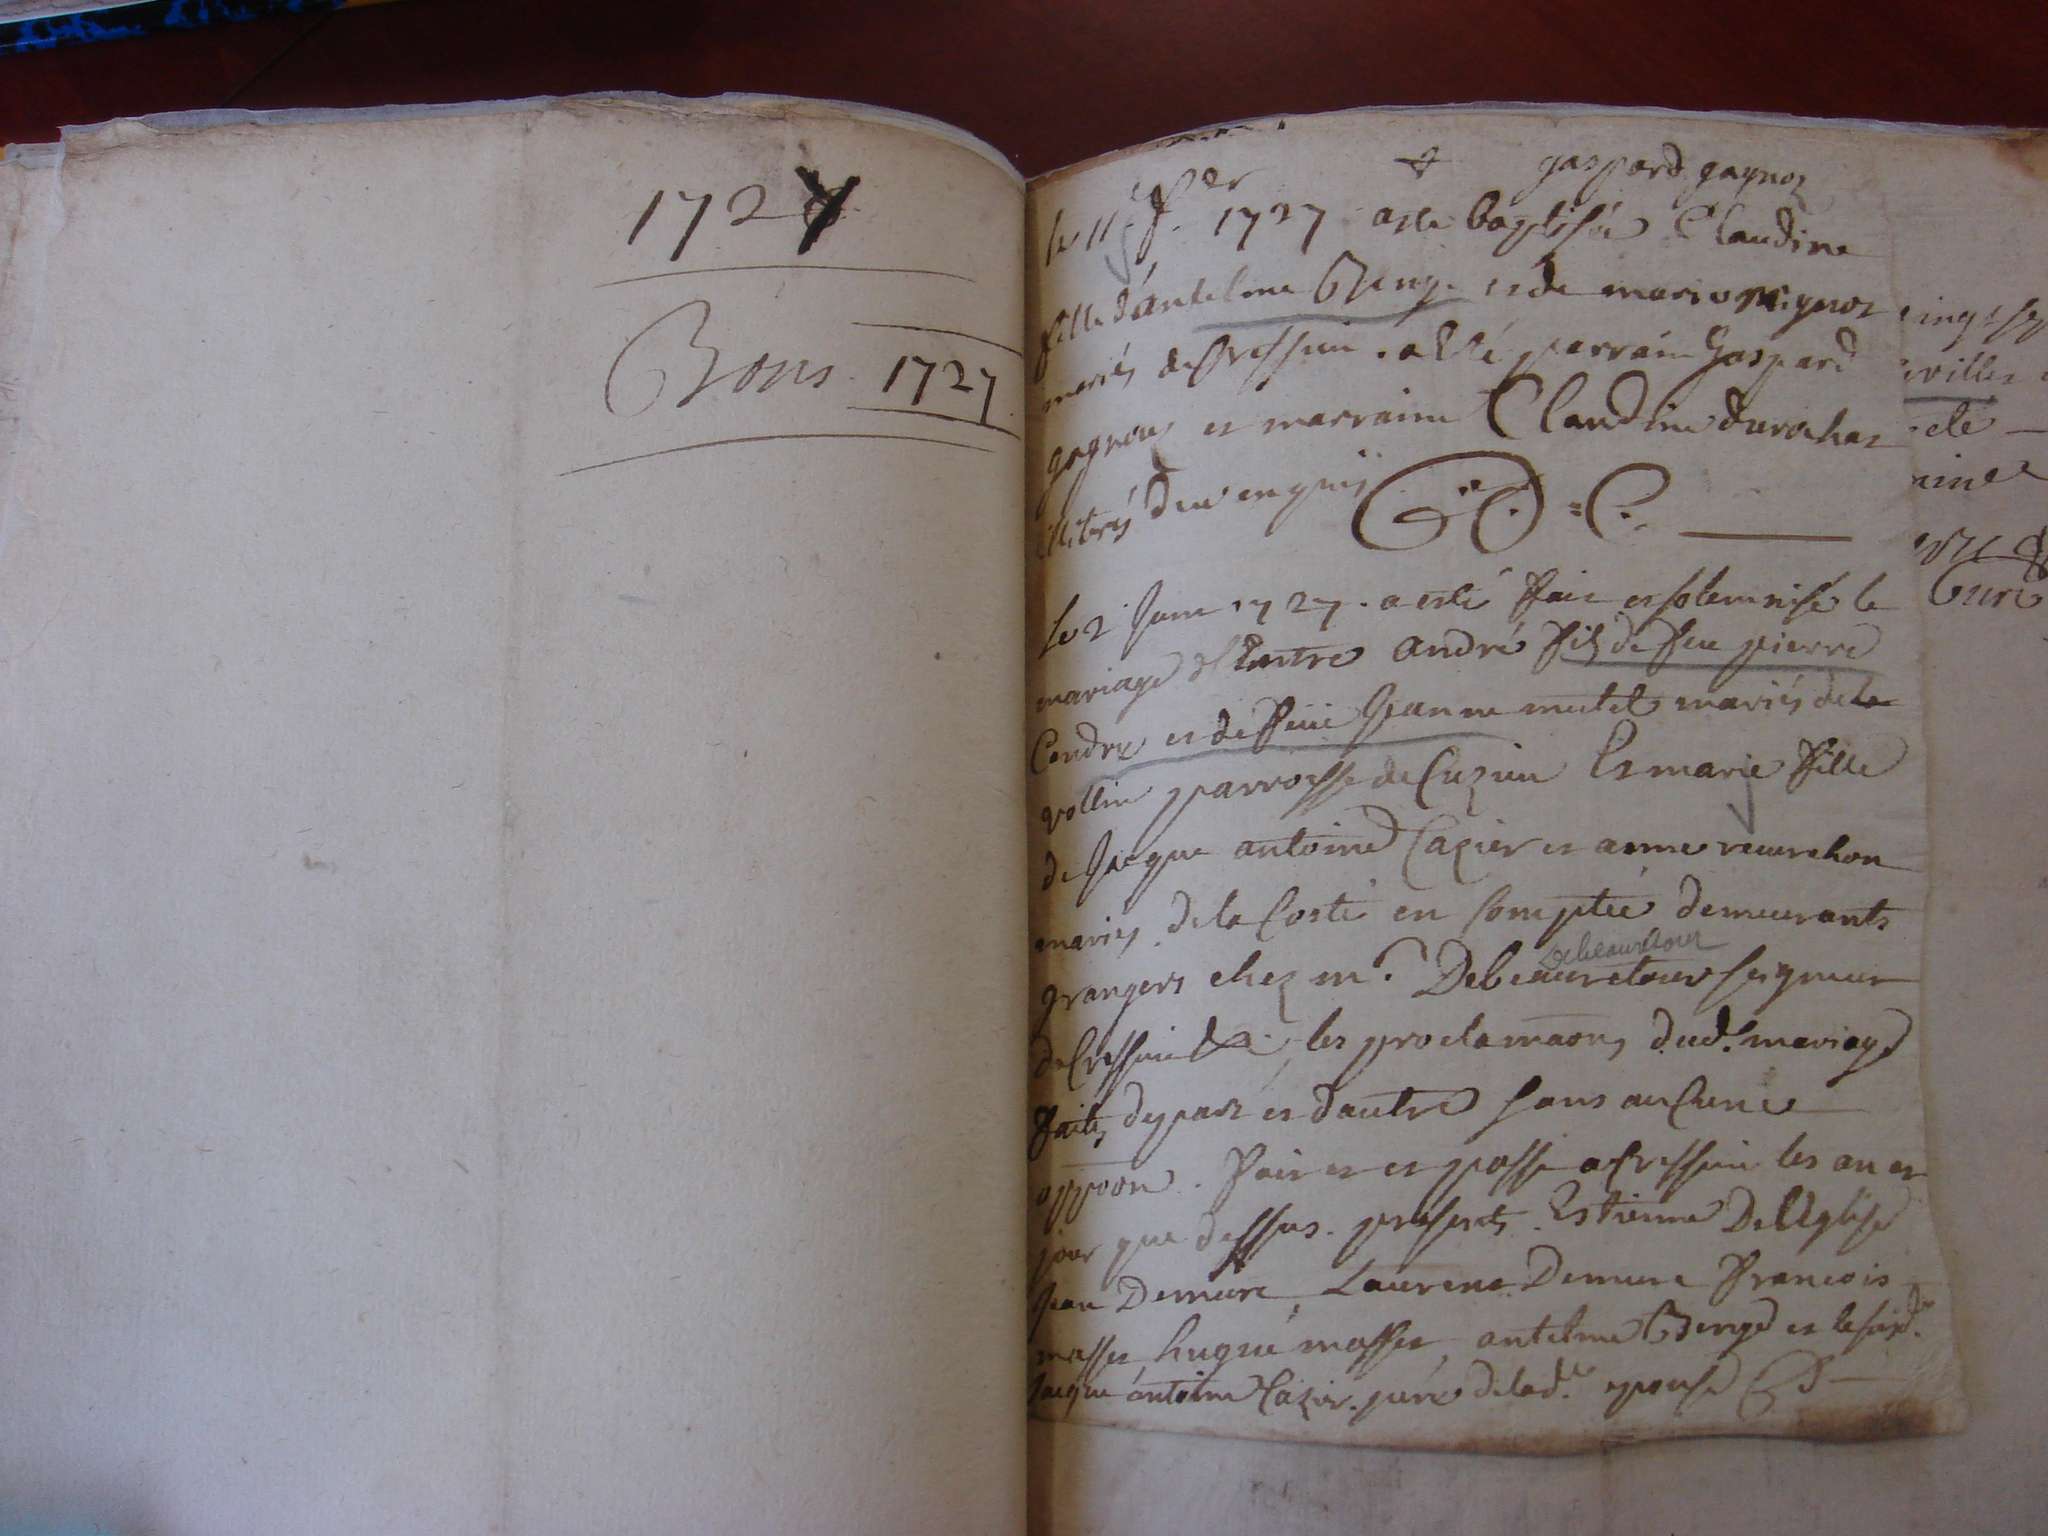 1727
Bons 1727
gaspard gagnoz
le 11e fr. 1727 a esté baptisée Claudine
fille d'antelme Benge et de marie
mariés de Cressieu. a esté parrain Gaspard
gagnoz et marraine Claudine durochat
illitrés deu enquis
le 2 Juin 1727. a esté fait et solemnisé le
mariage d'Entre andré fils de feu pierre
Cendre et de feüe Jeanne mutel mariés de la
vollin parroisse de Cuzieu Et marie fille
de Jacque antoine Cazier et anne reverchon
mariés de la Coste en Comptée demeurants
grangers chez mr. Debeauretour seigneur
Debeauretour
de Cressieu &a. les proclamaons dud. mariage
faites de part et d'autre sans aucune
oppoon. fait et passé a Cressieu les an et
jour que dessus. presents Estienne De l'Eglise
Jean Demure, Laurent Demure francois
masset, hugue masset, antelme Benge et le susd.
Jacque antoine Cazier. pere de lad.e epouse
ville
ete
Curé